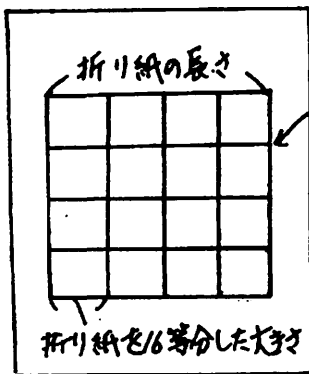 折り紙の長さ
折り紙を16等分した大きさ